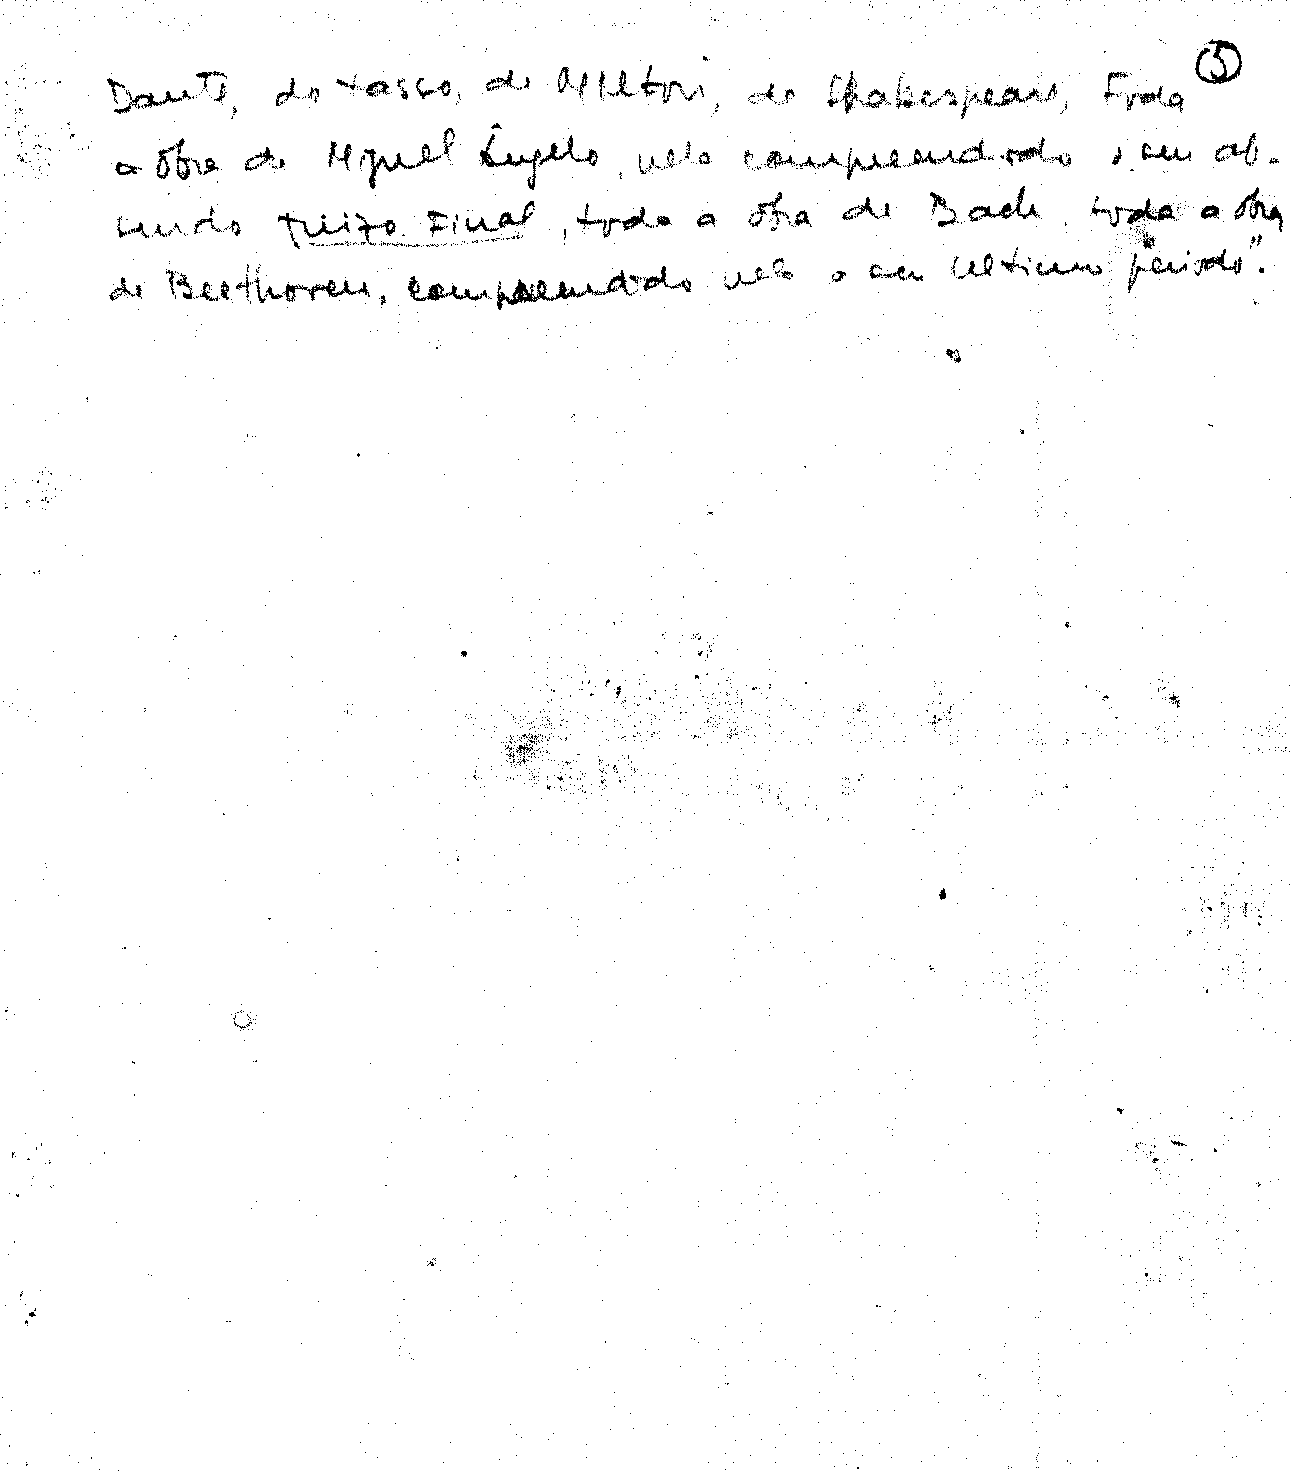 5
Dante, do Tasso, de Milton, de Shakespeare, Toda
a obra de Miguel Ângelo, nela compreendido o seu ab-
surdo Juizo Final, toda a obra de Bach, toda a obra
de Beethoven, compreendido nela o seu ultimo periodo".